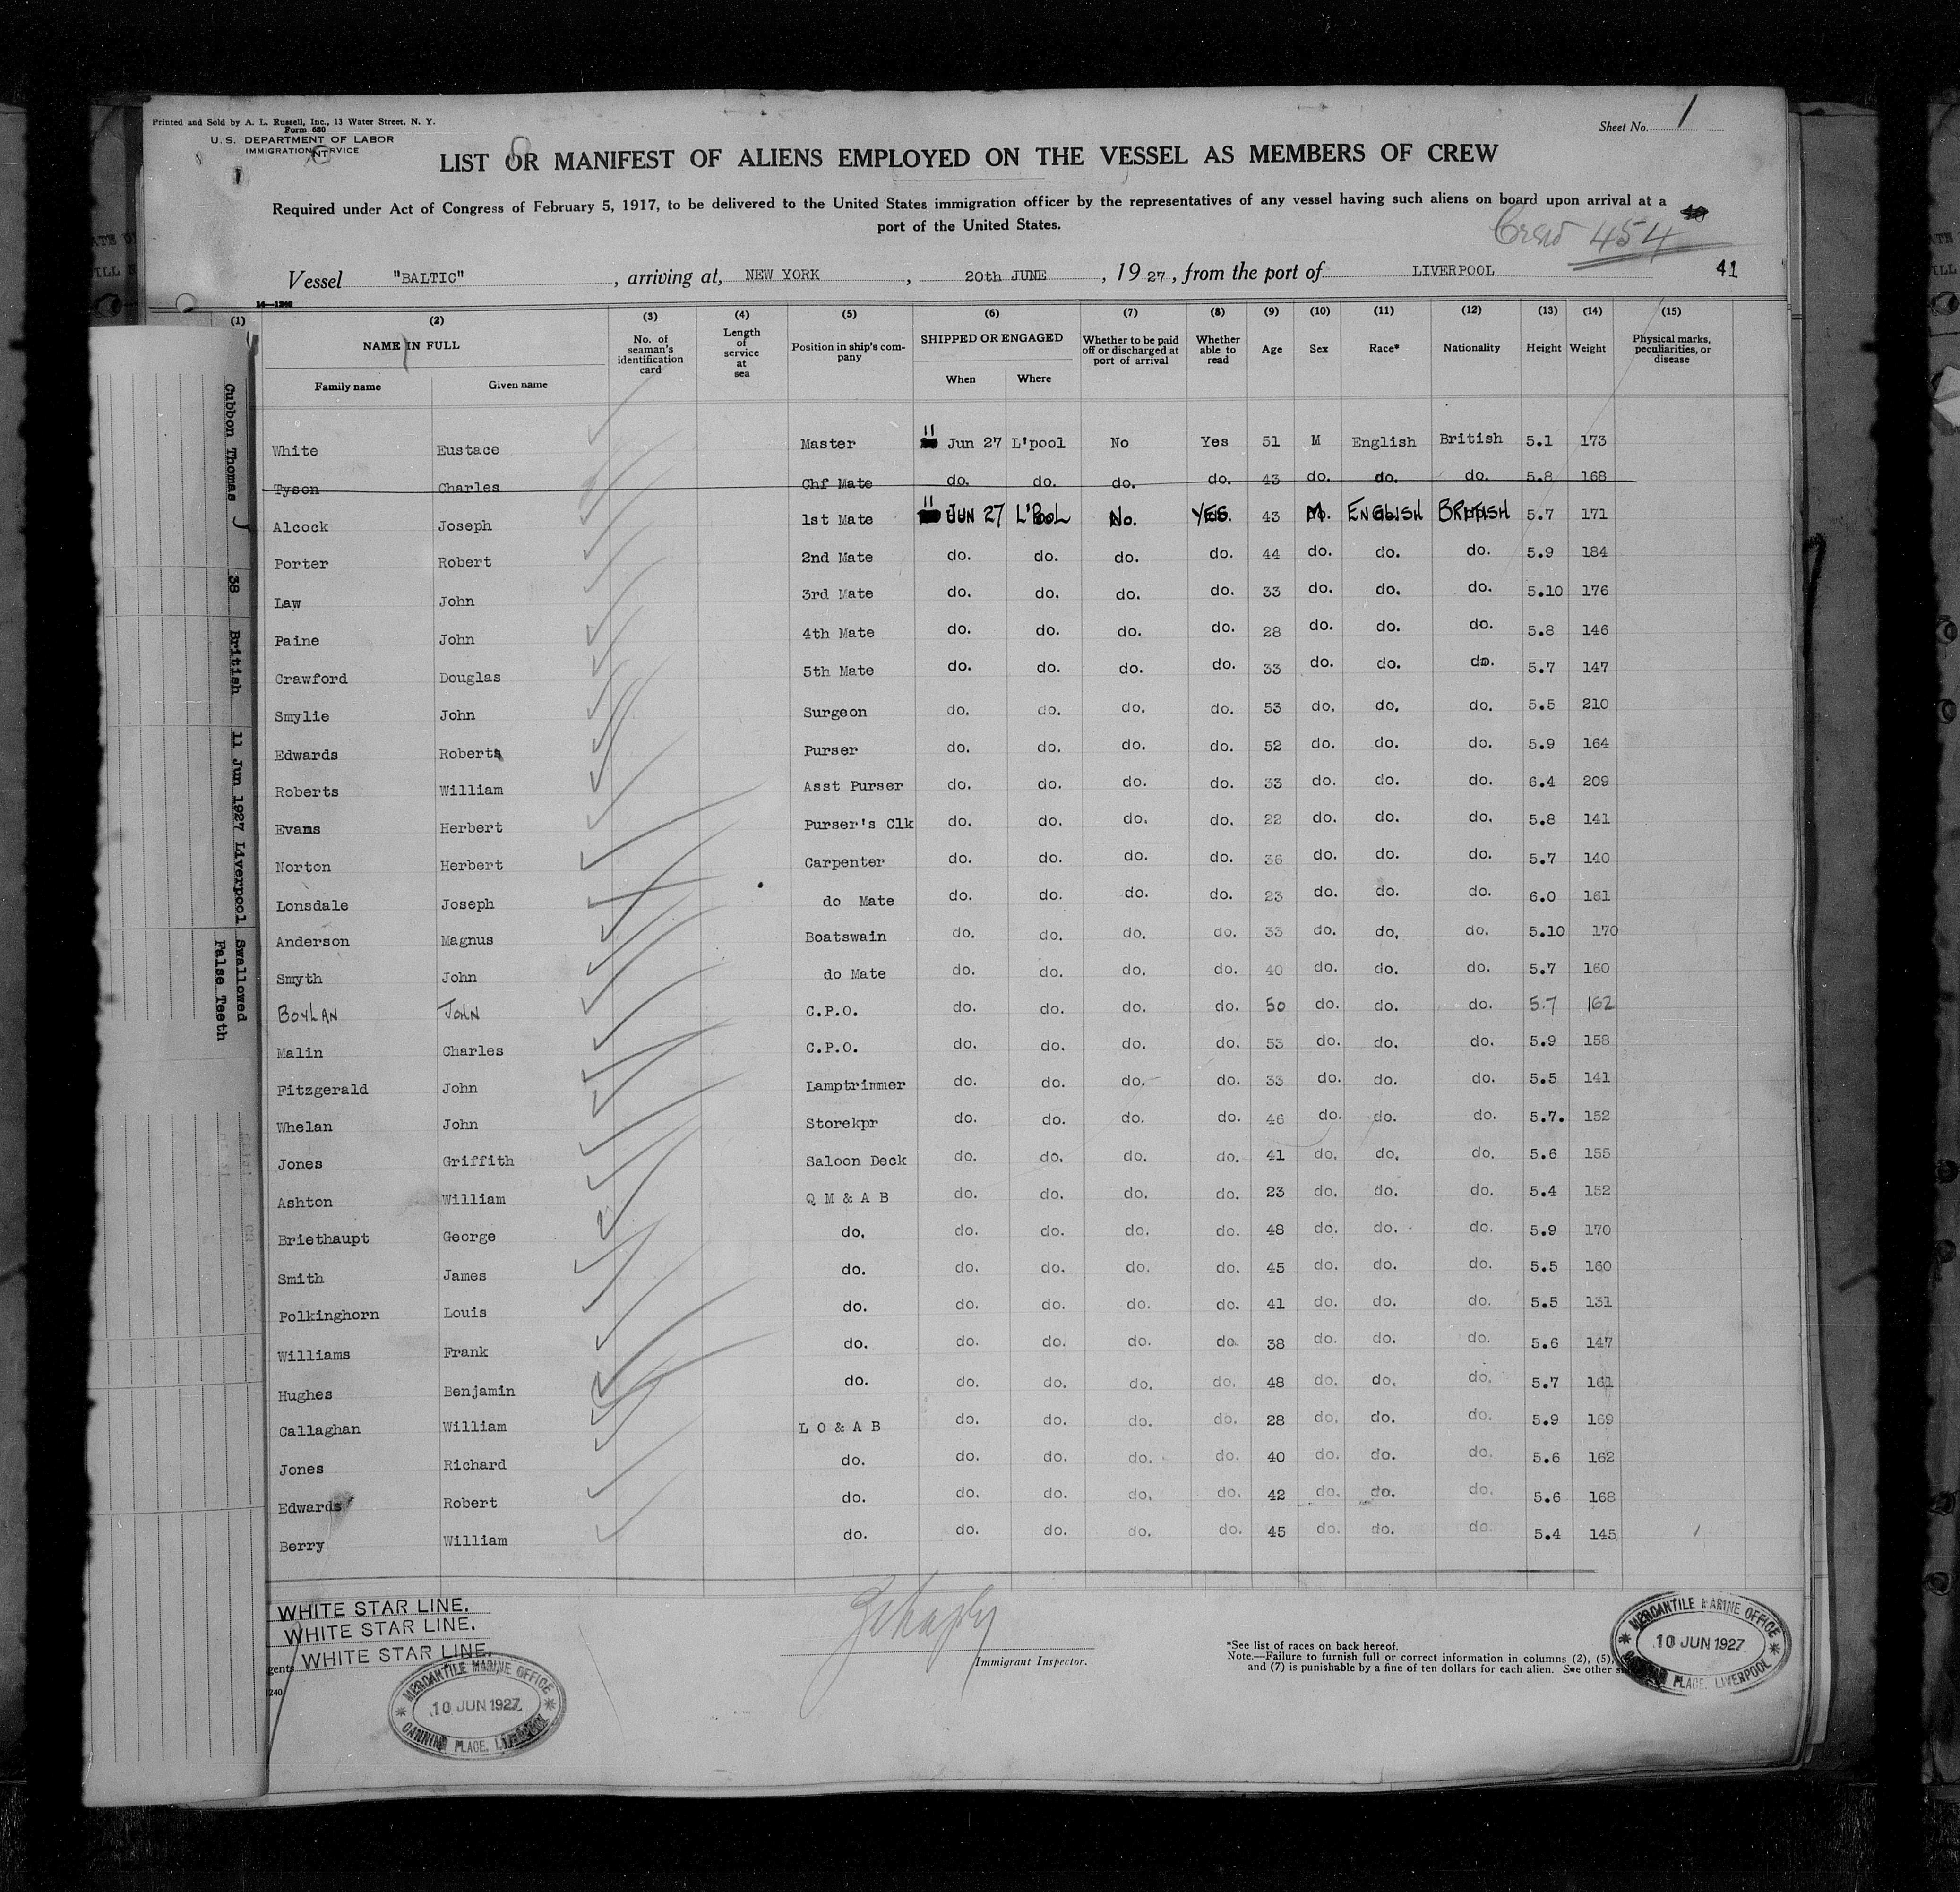 Printed and Sold by A. L. Russell, Inc., 13 Water Street, N. Y.
Form 680
U. S. DEPARTMENT OF LABOR
IMMIGRATION SERVICE
Sheet No. 1
LIST OR MANIFEST OF ALIENS EMPLOYED ON THE VESSEL AS MEMBERS OF CREW
Required under Act of Congress of February 5, 1917, to be delivered to the United States immigration officer by the representatives of any vessel having such aliens on board upon arrival at a
port of the United States.
Crew 454
Vessel "BALTIC", arriving at, NEW YORK, 20th JUNE, 1927, from the port of LIVERPOOL 41
14—1240
(1) (2) (3) (4) (5) (6) (7) (8) (9) (10) (11) (12) (13) (14) (15)
NAME IN FULL Family name Given name No. of seaman's identification card Length of service at sea Position in ship's company SHIPPED OR ENGAGED When Where Whether to be paid off or discharged at port of arrival Whether able to read Age Sex Race* Nationality Height Weight Physical marks, peculiarities, or disease
White Eustace Master 11 Jun 27 L'pool No Yes 51 M English British 5.1 173
Tyson Charles Chf Mate do. do. do. do. 43 do. do. do. 5.8 168
Alcock Joseph 1st Mate 11 JUN 27 L'POOL No. YES. 43 M. ENGLISH BRITISH 5.7 171
Porter Robert 2nd Mate do. do. do. do. 44 do. do. do. 5.9 184
Law John 3rd Mate do. do. do. do. 33 do. do. do. 5.10 176
Paine John 4th Mate do. do. do. do. 28 do. do. do. 5.8 146
Crawford Douglas 5th Mate do. do. do. do. 33 do. do. do. 5.7 147
Smylie John Surgeon do. do. do. do. 53 do. do. do. 5.5 210
Edwards Roberts Purser do. do. do. do. 52 do. do. do. 5.9 164
Roberts William Asst Purser do. do. do. do. 33 do. do. do. 6.4 209
Evans Herbert Purser's Clk do. do. do. do. 22 do. do. do. 5.8 141
Norton Herbert Carpenter do. do. do. do. 36 do. do. do. 5.7 140
Lonsdale Joseph do Mate do. do. do. do. 23 do. do. do. 6.0 161
Anderson Magnus Boatswain do. do. do. do. 33 do. do. do. 5.10 170
Smyth John do Mate do. do. do. do. 40 do. do. do. 5.7 160
BOYLAN JOHN C.P.O. do. do. do. do. 50 do. do. do. 5.7 162
Malin Charles C.P.O. do. do. do. do. 53 do. do. do. 5.9 158
Fitzgerald John Lamptrimmer do. do. do. do. 33 do. do. do. 5.5 141
Whelan John Storekpr do. do. do. do. 46 do. do. do. 5.7. 152
Jones Griffith Saloon Deck do. do. do. do. 41 do. do. do. 5.6 155
Ashton William Q M & A B do. do. do. do. 23 do. do. do. 5.4 152
Briethaupt George do. do. do. do. do. 48 do. do. do. 5.9 170
Smith James do. do. do. do. do. 45 do. do. do. 5.5 160
Polkinghorn Louis do. do. do. do. do. 41 do. do. do. 5.5 131
Williams Frank do. do. do. do. do. 38 do. do. do. 5.6 147
Hughes Benjamin do. do. do. do. do. 48 do. do. do. 5.7 161
Callaghan William L O & A B do. do. do. do. 28 do. do. do. 5.9 169
Jones Richard do. do. do. do. do. 40 do. do. do. 5.6 162
Edwards Robert do. do. do. do. do. 42 do. do. do. 5.6 168
Berry William do. do. do. do. do. 45 do. do. do. 5.4 145
Cubbon Thomas 38 British 11 Jun 1927 Liverpool Swallowed
False Teeth
WHITE STAR LINE.
WHITE STAR LINE.
gents WHITE STAR LINE.
1240
Immigrant Inspector.
*See list of races on back hereof.
Note.—Failure to furnish full or correct information in columns (2), (5),
and (7) is punishable by a fine of ten dollars for each alien. See other
MERCANTILE MARINE OFFICE
10 JUN 1927
CANNING PLACE, LIVERPOOL
MERCANTILE MARINE OFFICE
10 JUN 1927
PLACE, LIVERPOOL